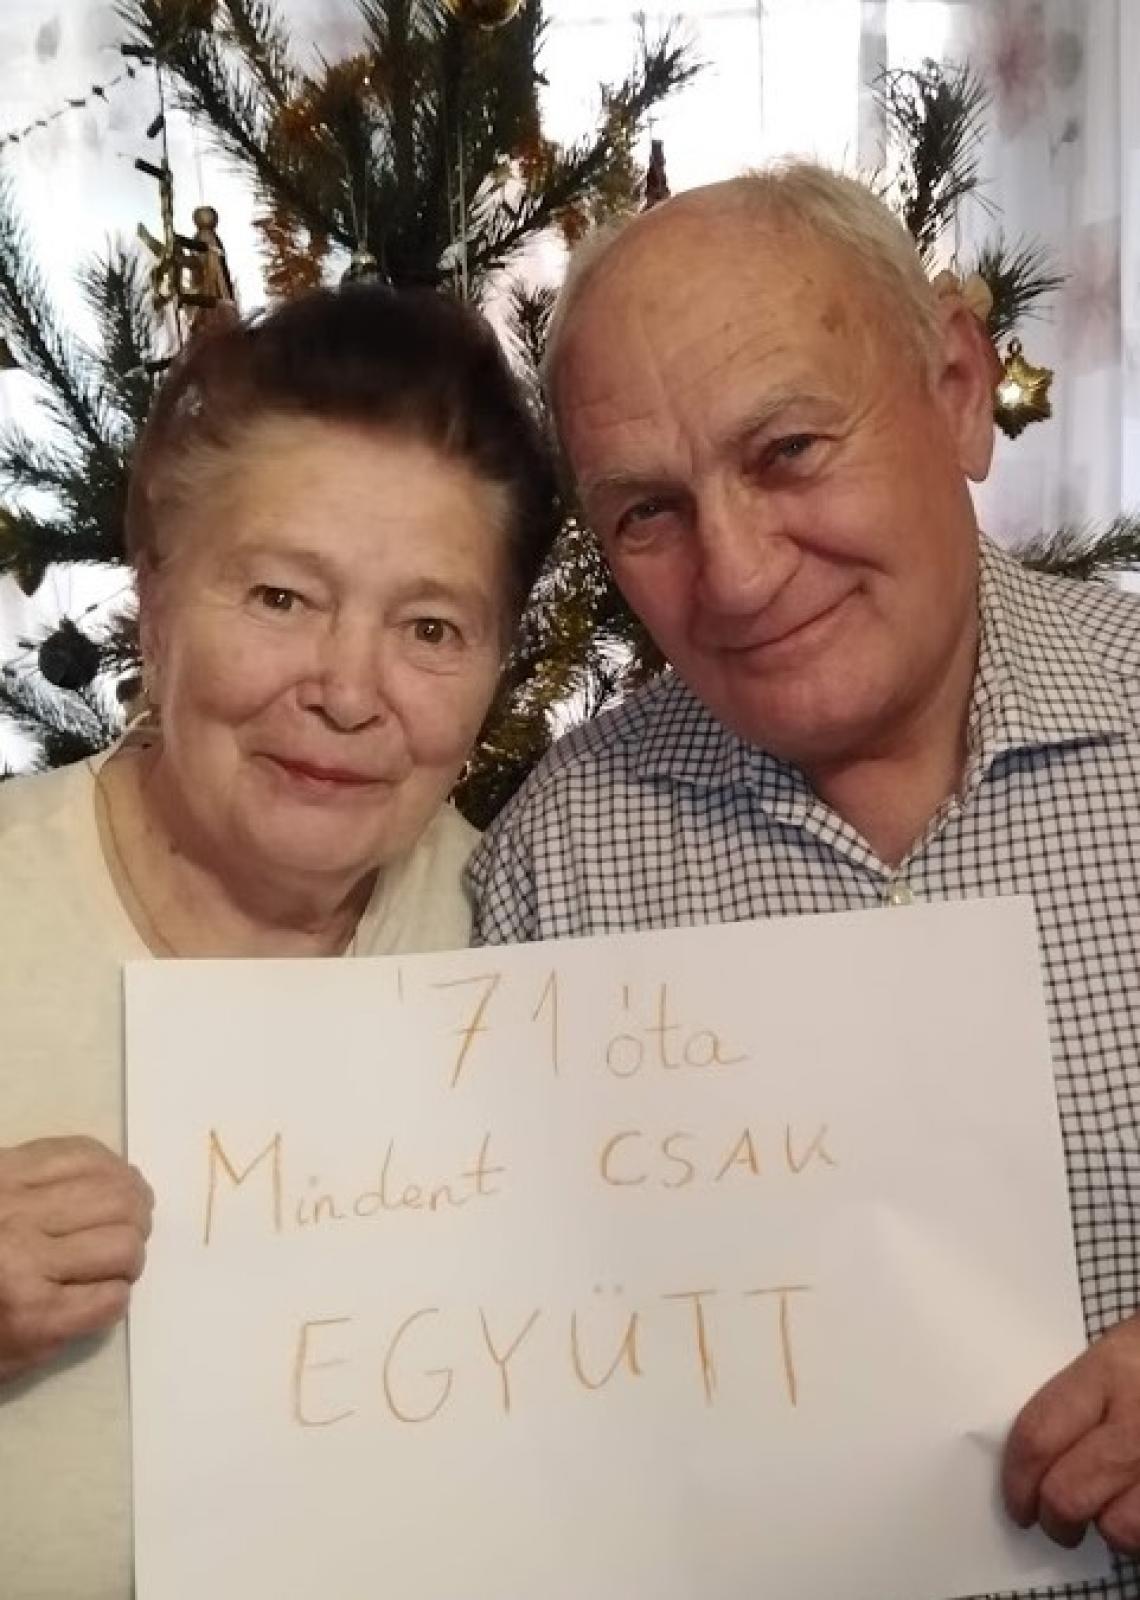 '71 óta
Mindent CSAK
EGYÜTT